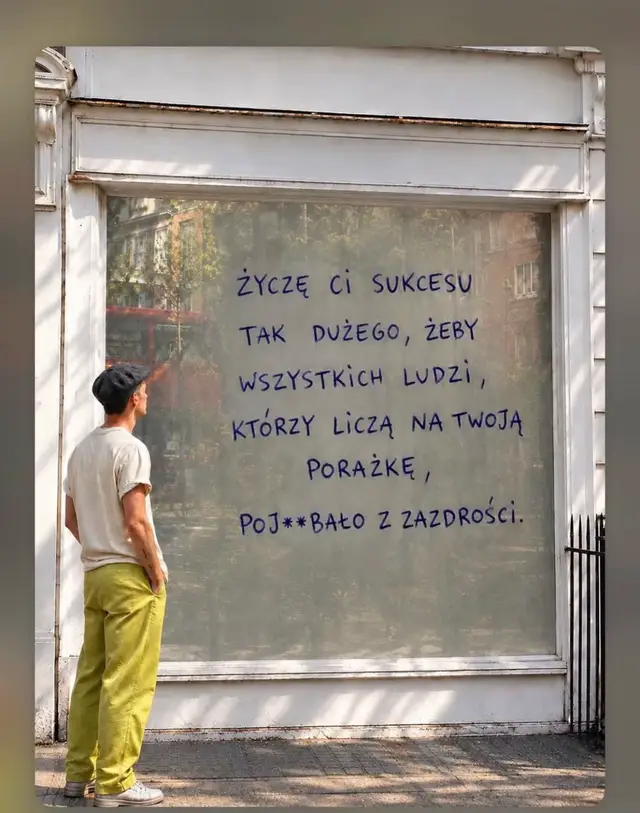 ŻYCZĘ Ci SUKCESU
TAK DUŻEGO, ŻEBY
WSZYSTKiCH LUDZi,
KTÓRZY LiCZĄ NA TWOJĄ
PORAŻKĘ,
POJ**BAŁO Z ZAZDROŚCi.